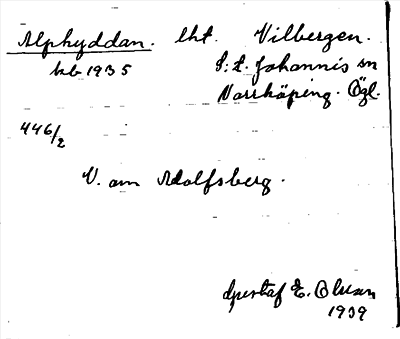 Alphyddan. lht. Vilbergen.
kb 1935 S:t Johannis sn
Norrköping. Ögl.
446/2
V. om Adolfsberg.
Gustaf E. Olsson
1939